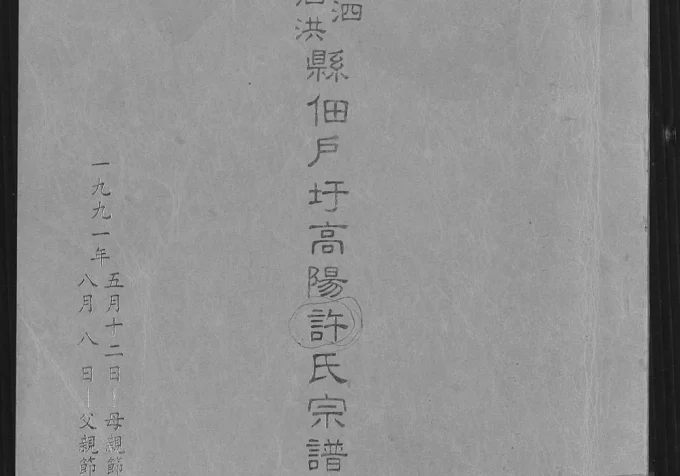 泗
洪縣佃戶圩高陽許氏宗譜
一九九一年
五月十二日—母親節
八月八日—父親節